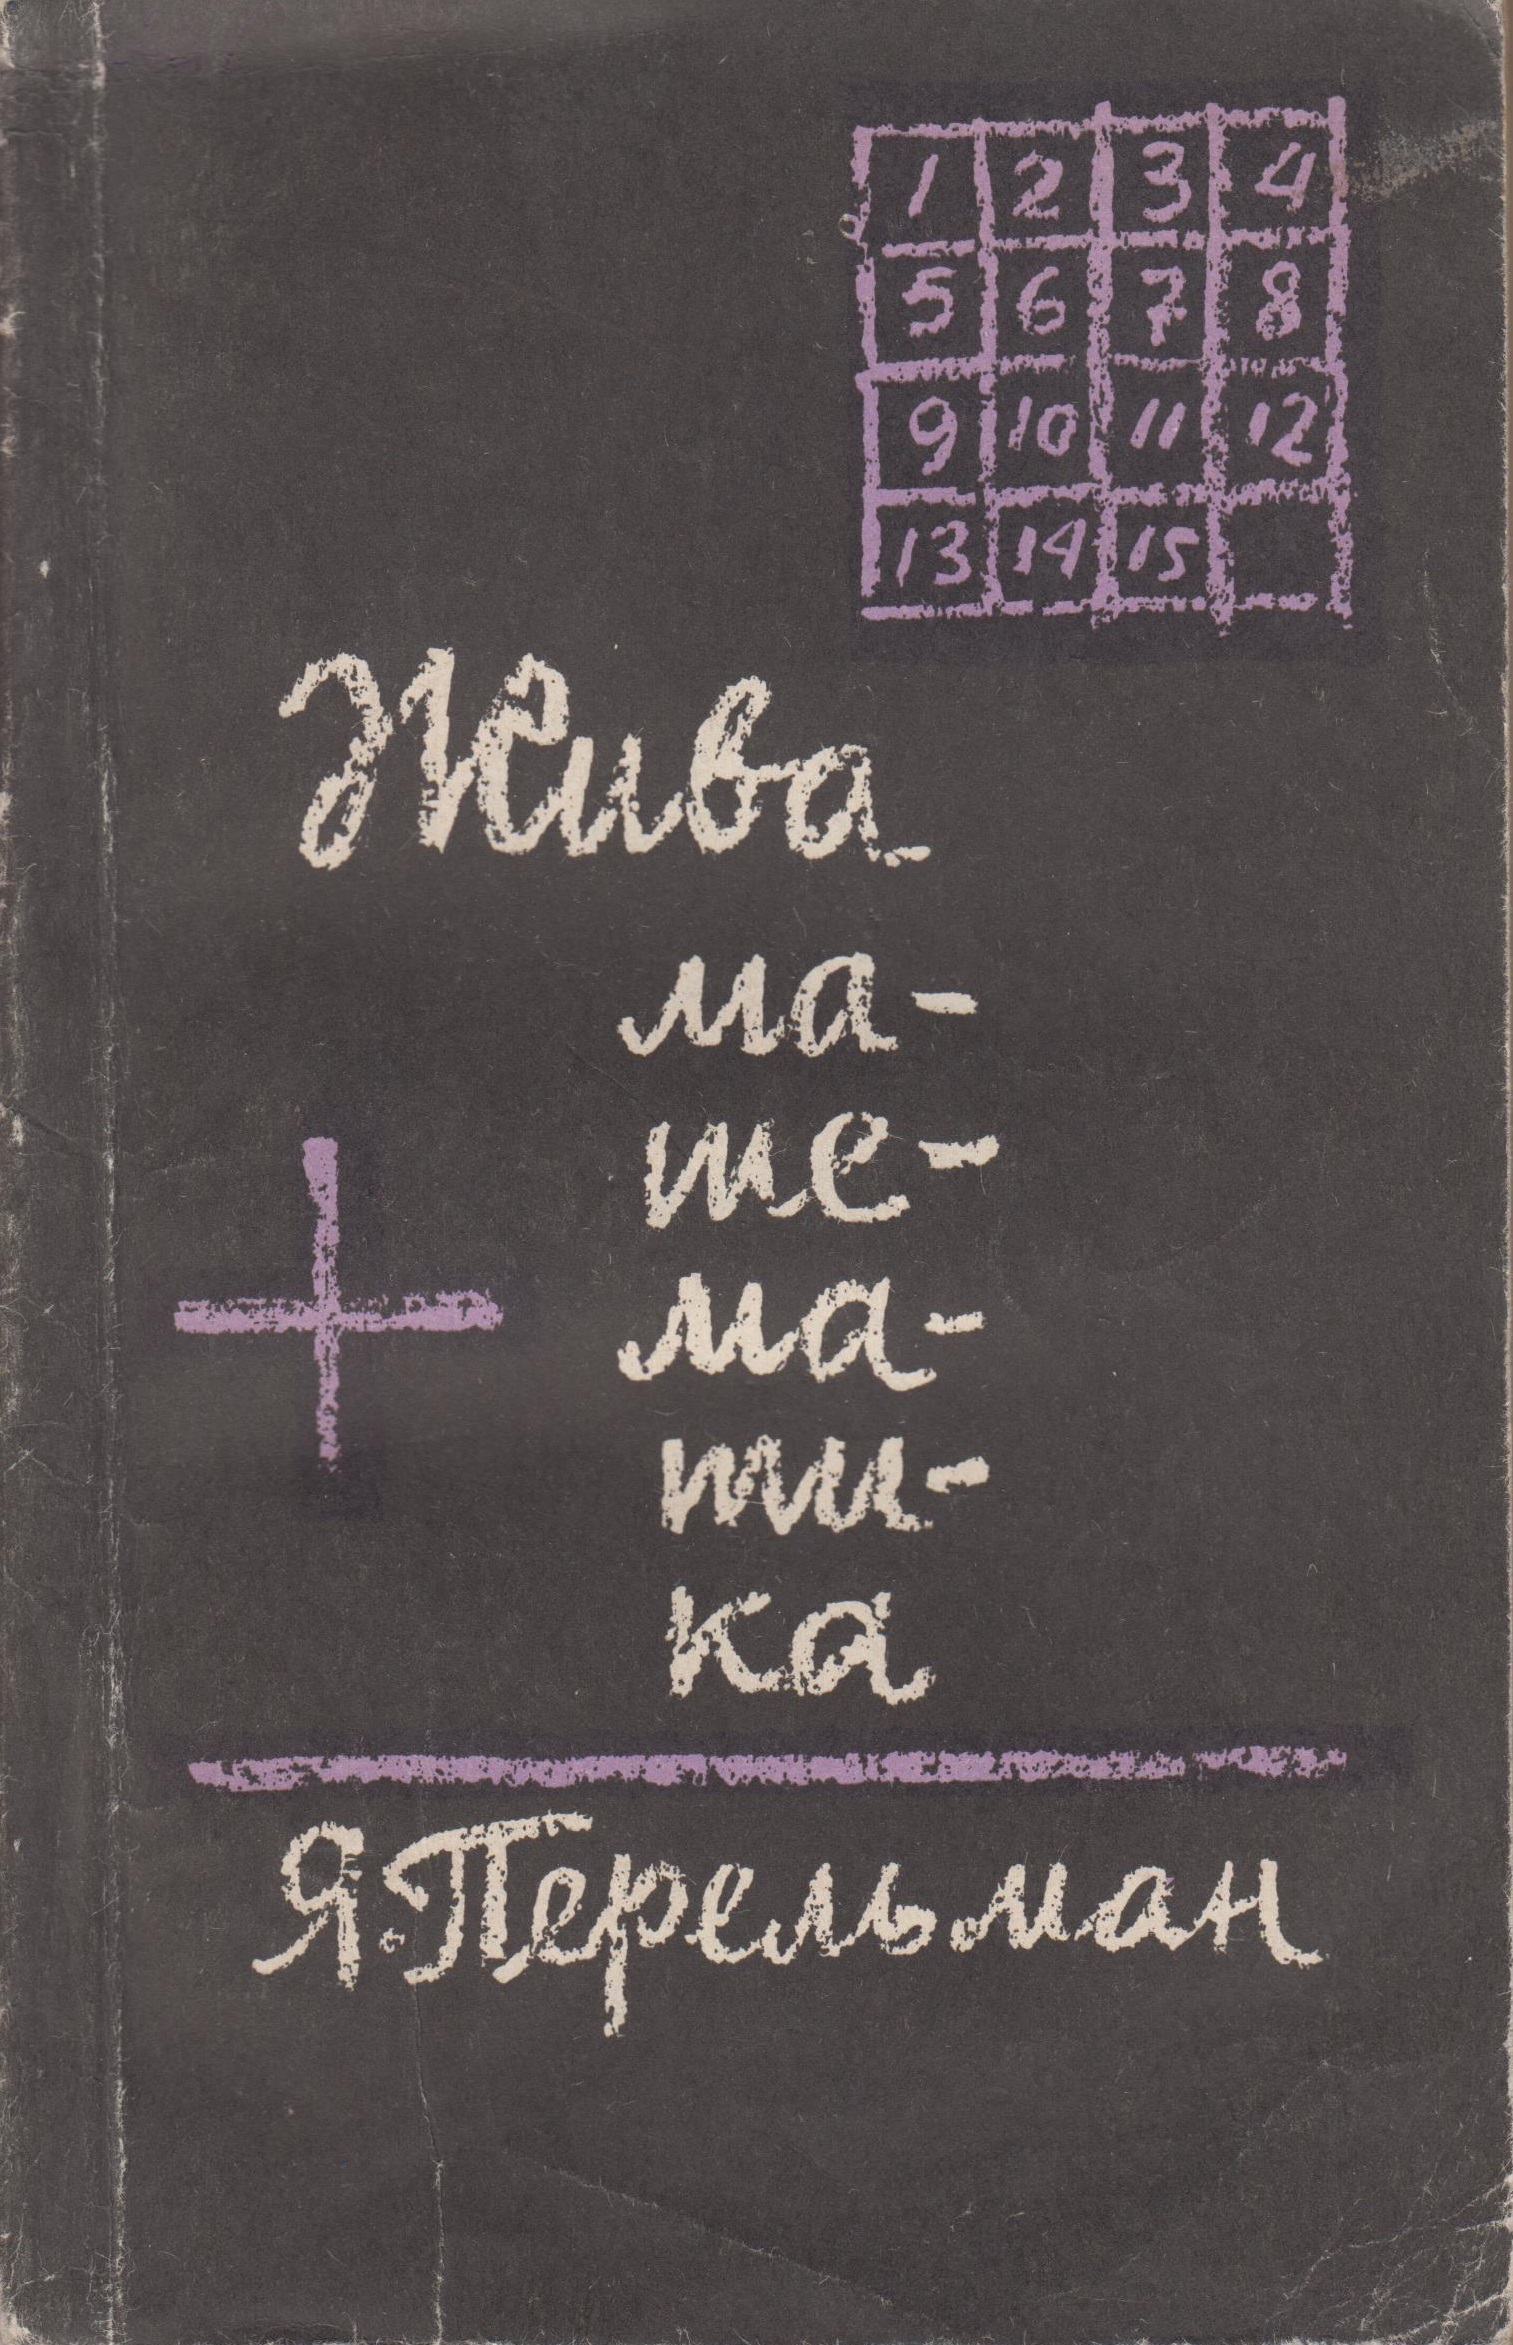 1 2 3 4
5 6 7 8
9 10 11 12
13 14 15
Жива
ма-
те-
ма-
ти-
ка
Я. Перельман